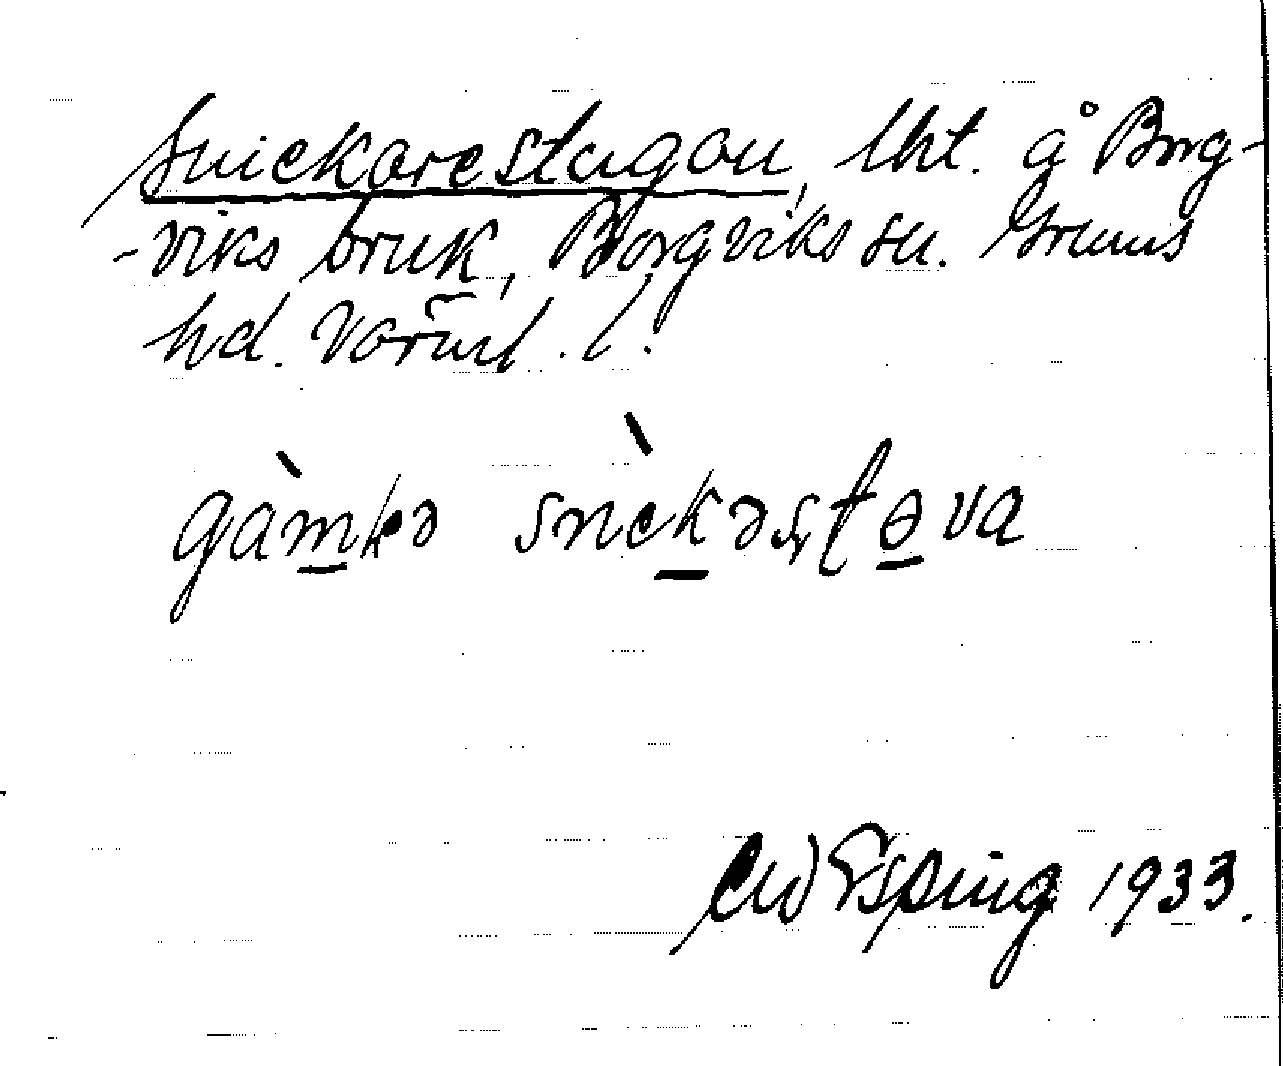 Snickarestugan, lht. å Borg-
-viks bruk, Borgviks sn. Grums
hd. Värml. l.
gàmḻə snekəstɵva
CW Esping 1933.